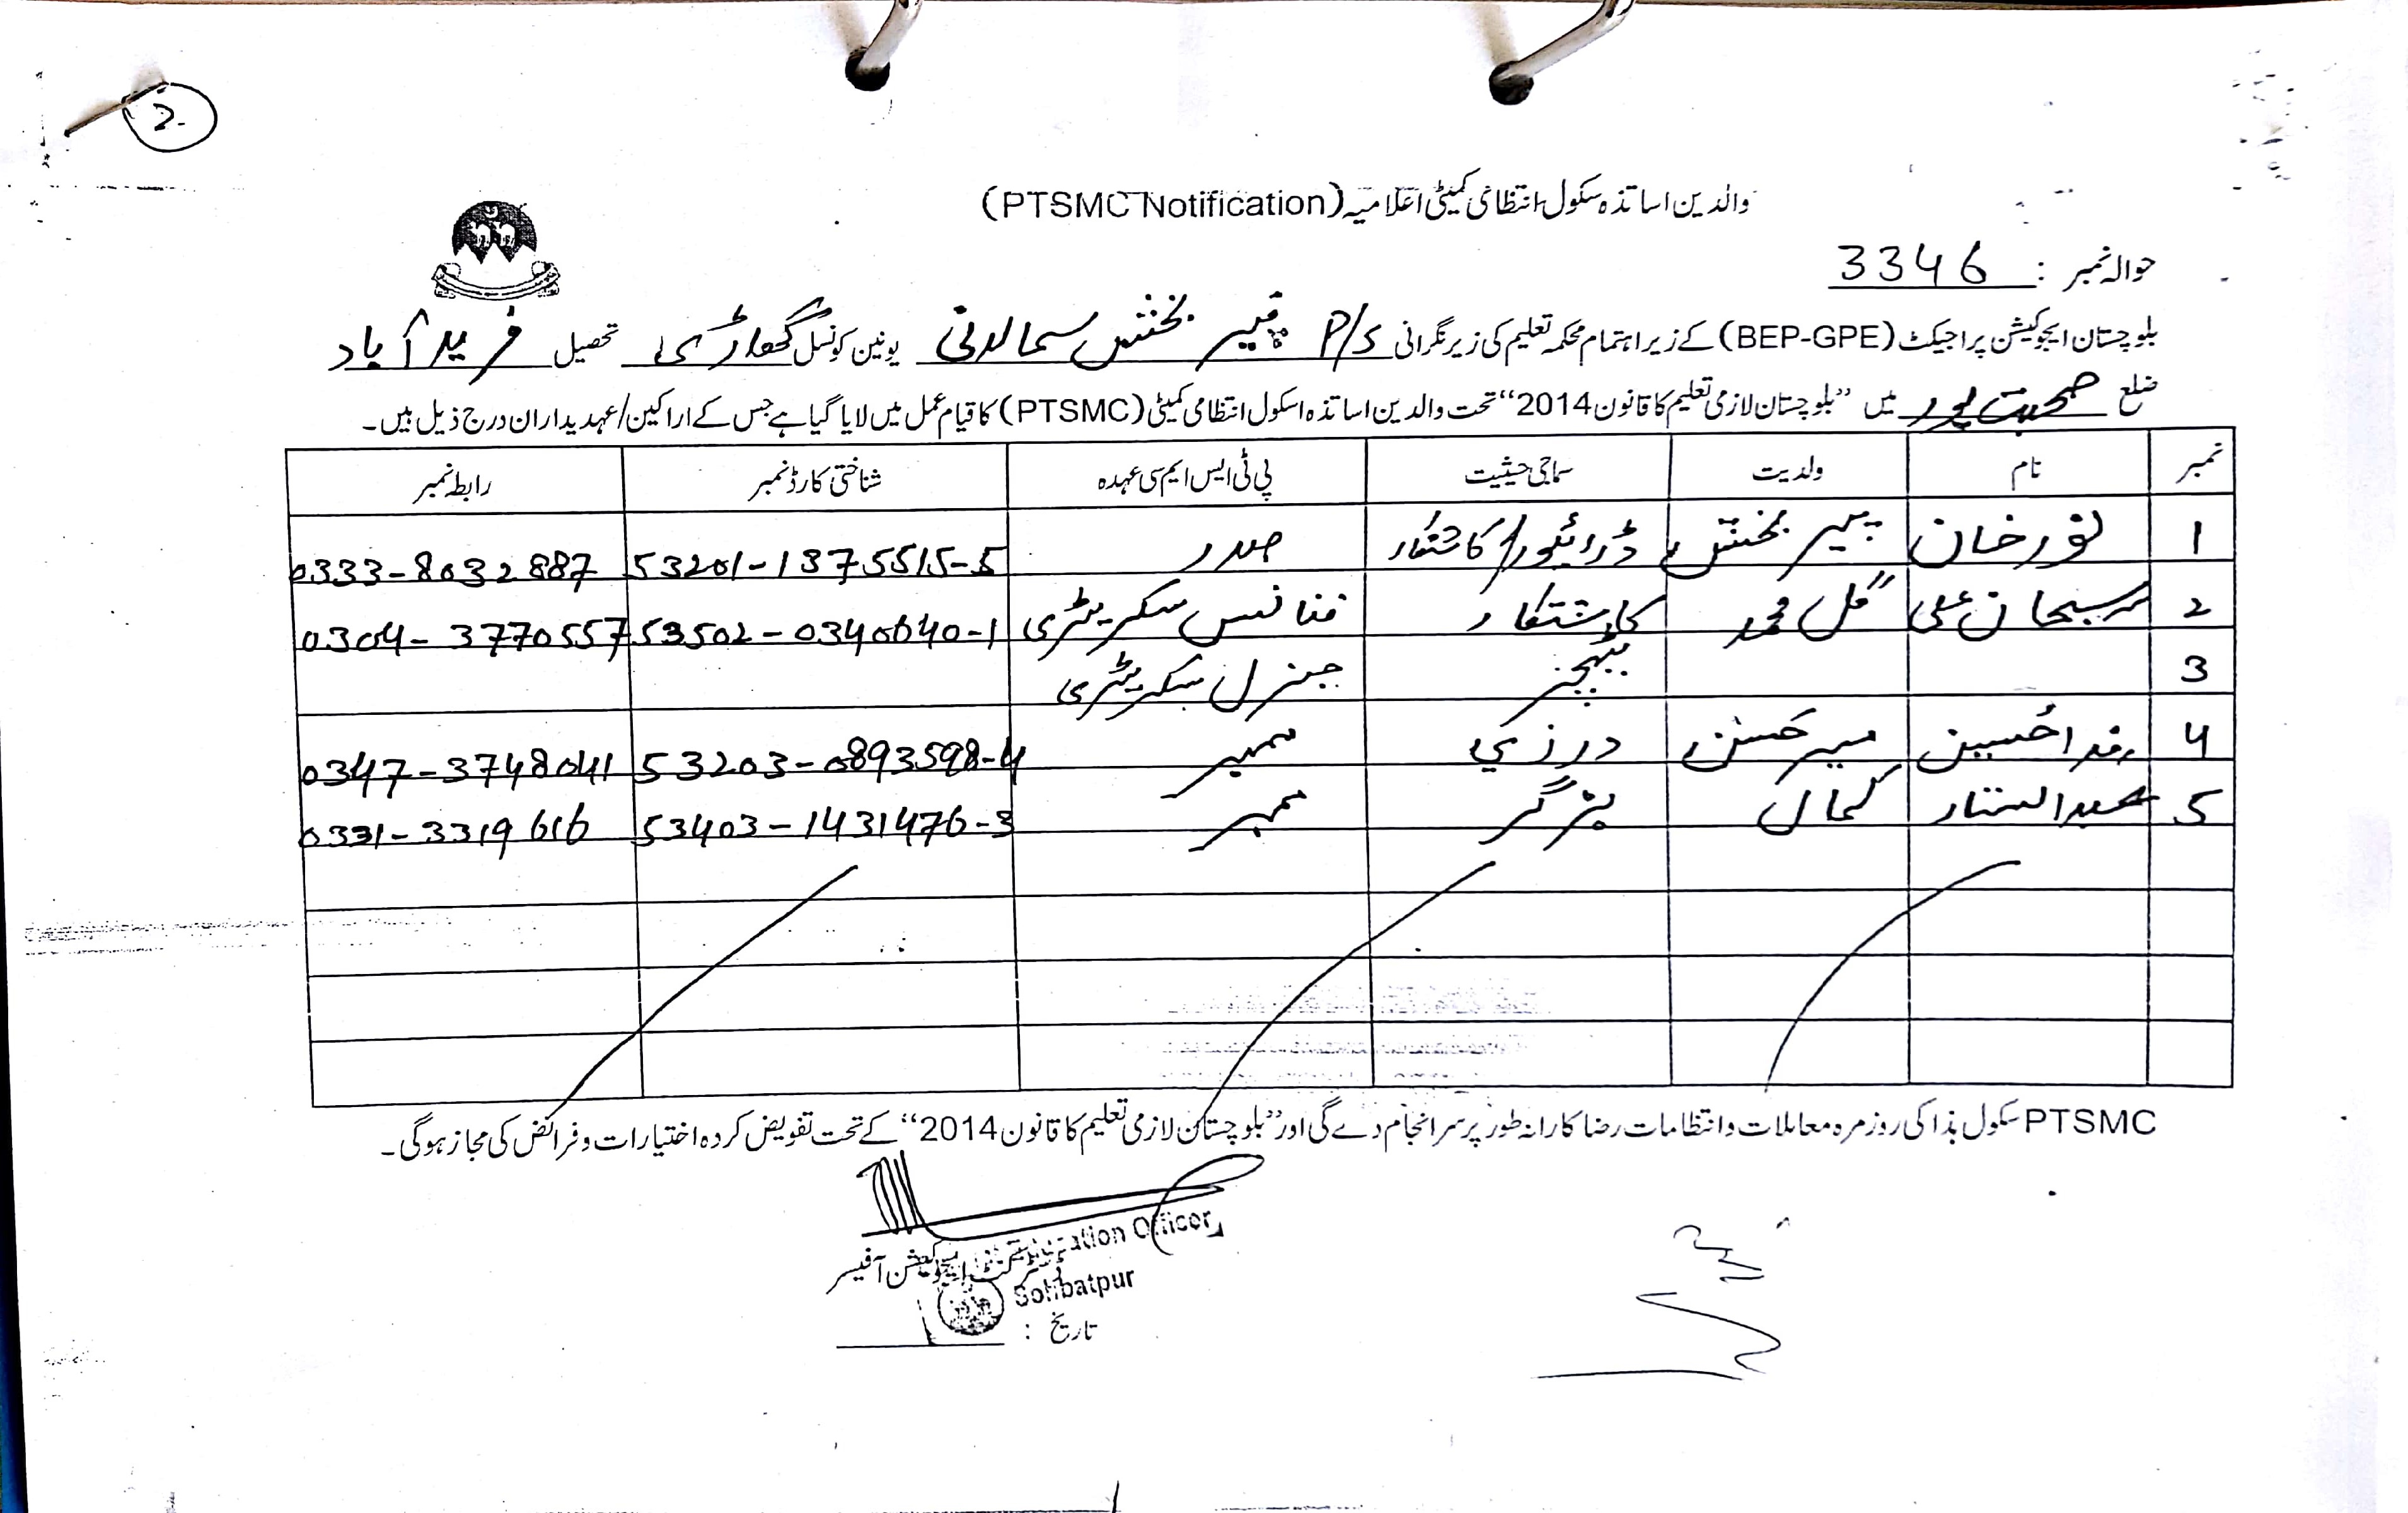 2
والدین اساتذہ سکول انتظامی کمیٹی اعلامیہ (PTSMC Notification)
حوالہ نمبر : 3346
بلوچستان ایجوکیشن پراجیکٹ (BEP-GPE) کے زیر اہتمام محکمہ تعلیم کی زیر نگرانی P/S پیر بخش سمالانی یونین کونسل گھاڑی تحصیل فرید آباد
ضلع صحبت پور میں ”بلوچستان لازمی تعلیم کا قانون 2014“ تحت والدین اساتذہ اسکول انتظامی کمیٹی (PTSMC) کا قیام عمل میں لایا گیا ہے جس کے اراکین/عہدیداران درج ذیل ہیں۔
نمبر نام ولدیت سماجی حیثیت پی ٹی ایس ایم سی عہدہ شناختی کارڈ نمبر رابطہ نمبر
1 نور خان پیر بخش ڈرائیور/کاشتکار صدر 53201-1375515-5 0333-8032887
2 سبحان علی گل محمد کاشتکار فنانس سکریٹری 53502-0340640-1 0304-3770557
3 ٹیچر جنرل سکریٹری
4 فدا حسین میر حسن درزی ممبر 53203-0893598-4 0347-3748041
5 عبدالستار کمال بزگر ممبر 53403-1431476-3 0331-3319616
PTSMC سکول ہذا کی روزمرہ معاملات و انتظامات رضاکارانہ طور پر سرانجام دے گی اور ”بلوچستان لازمی تعلیم کا قانون 2014“ کے تحت تفویض کردہ اختیارات و فرائض کی مجاز ہوگی۔
Education Officer
ڈسٹرکٹ ایجوکیشن آفیسر
Sohbatpur
تاریخ :